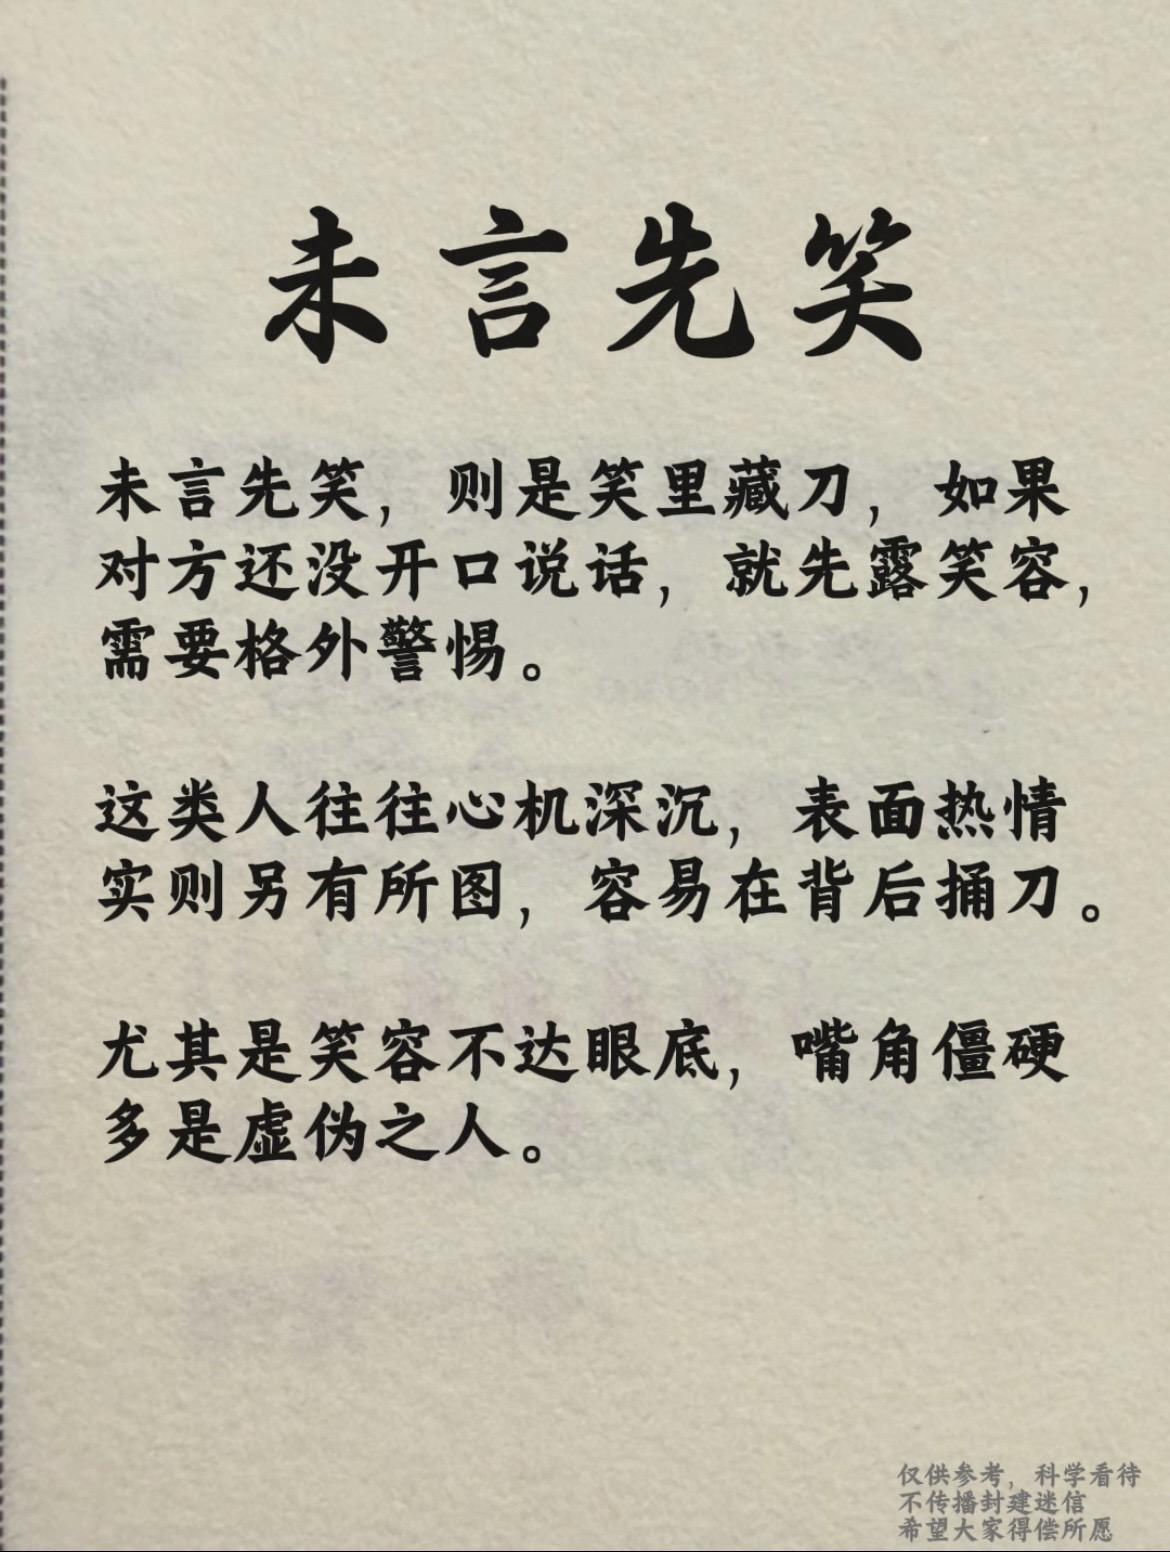 未言先笑
未言先笑，则是笑里藏刀，如果
对方还没开口说话，就先露笑容，
需要格外警惕。
这类人往往心机深沉，表面热情
实则另有所图，容易在背后捅刀。
尤其是笑容不达眼底，嘴角僵硬
多是虚伪之人。
仅供参考，科学看待
不传播封建迷信
希望大家得偿所愿